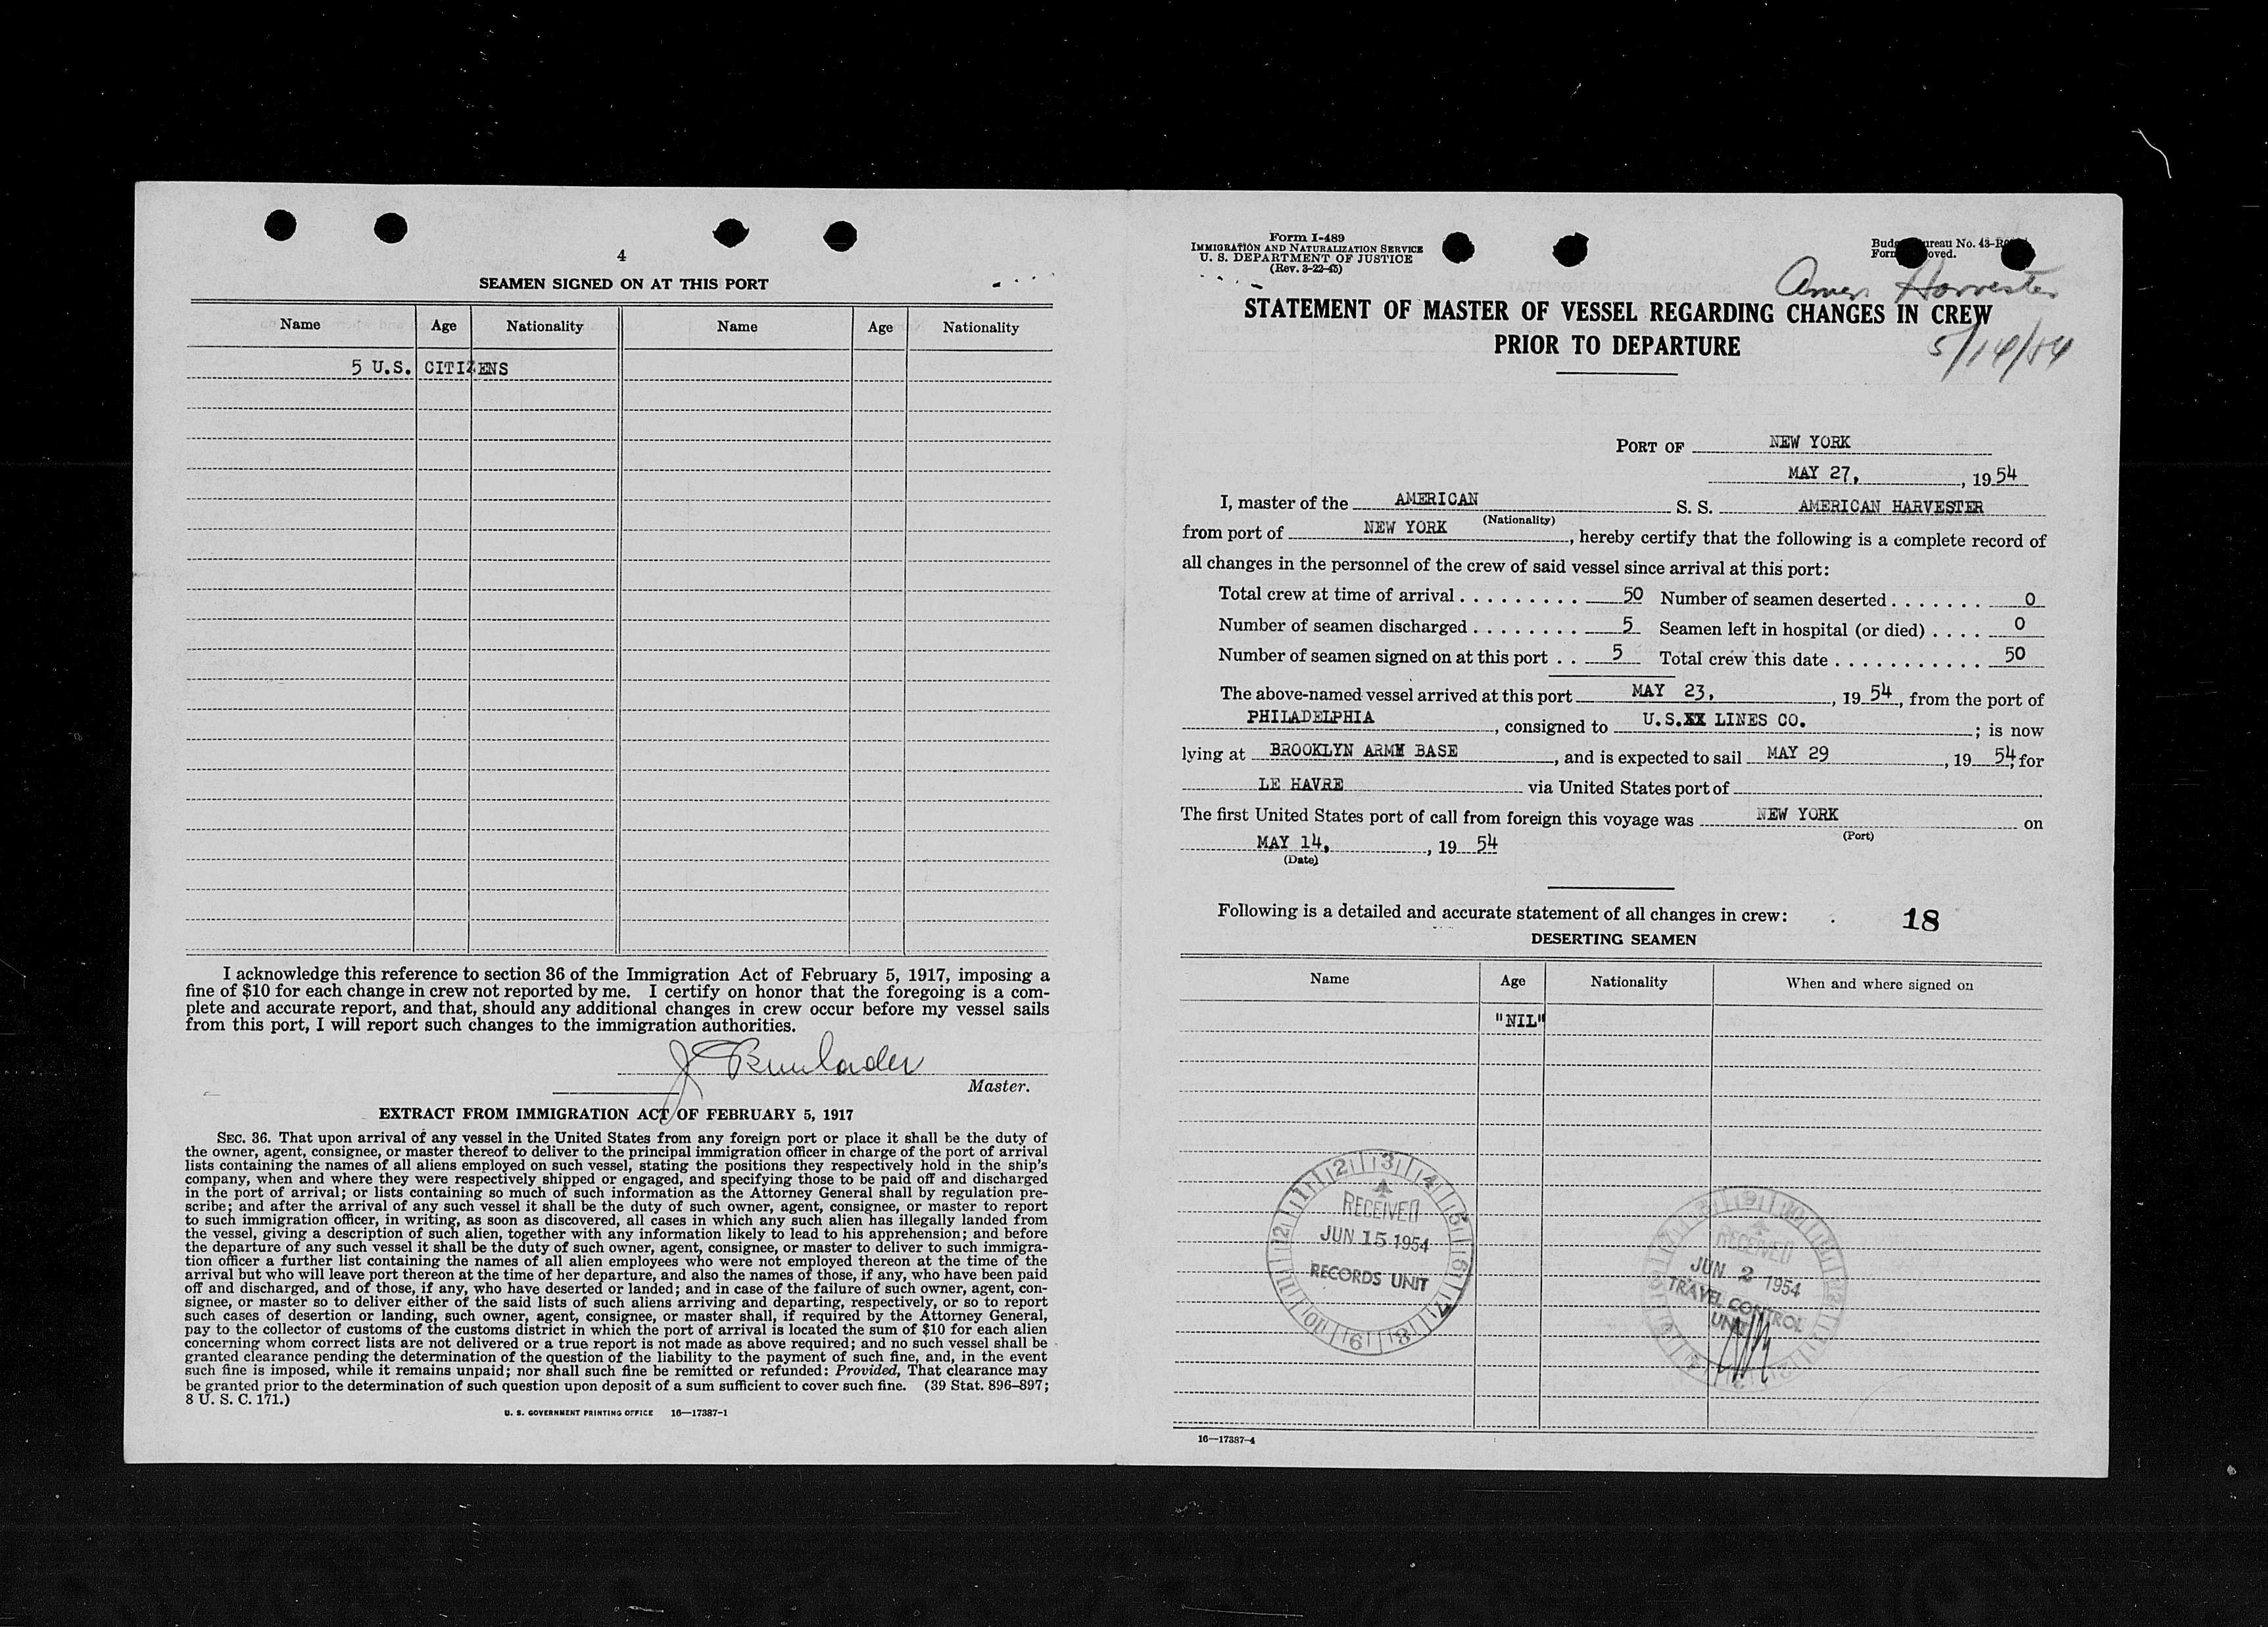 4
SEAMEN SIGNED ON AT THIS PORT
Name Age Nationality Name Age Nationality
5 U.S. CITIZENS
I acknowledge this reference to section 36 of the Immigration Act of February 5, 1917, imposing a
fine of $10 for each change in crew not reported by me. I certify on honor that the foregoing is a com-
plete and accurate report, and that, should any additional changes in crew occur before my vessel sails
from this port, I will report such changes to the immigration authorities.
Master.
EXTRACT FROM IMMIGRATION ACT OF FEBRUARY 5, 1917
SEC. 36. That upon arrival of any vessel in the United States from any foreign port or place it shall be the duty of
the owner, agent, consignee, or master thereof to deliver to the principal immigration officer in charge of the port of arrival
lists containing the names of all aliens employed on such vessel, stating the positions they respectively hold in the ship's
company, when and where they were respectively shipped or engaged, and specifying those to be paid off and discharged
in the port of arrival; or lists containing so much of such information as the Attorney General shall by regulation pre-
scribe; and after the arrival of any such vessel it shall be the duty of such owner, agent, consignee, or master to report
to such immigration officer, in writing, as soon as discovered, all cases in which any such alien has illegally landed from
the vessel, giving a description of such alien, together with any information likely to lead to his apprehension; and before
the departure of any such vessel it shall be the duty of such owner, agent, consignee, or master to deliver to such immigra-
tion officer a further list containing the names of all alien employees who were not employed thereon at the time of the
arrival but who will leave port thereon at the time of her departure, and also the names of those, if any, who have been paid
off and discharged, and of those, if any, who have deserted or landed; and in case of the failure of such owner, agent, con-
signee, or master so to deliver either of the said lists of such aliens arriving and departing, respectively, or so to report
such cases of desertion or landing, such owner, agent, consignee, or master shall, if required by the Attorney General,
pay to the collector of customs of the customs district in which the port of arrival is located the sum of $10 for each alien
concerning whom correct lists are not delivered or a true report is not made as above required; and no such vessel shall be
granted clearance pending the determination of the question of the liability to the payment of such fine, and, in the event
such fine is imposed, while it remains unpaid; nor shall such fine be remitted or refunded: Provided, That clearance may
be granted prior to the determination of such question upon deposit of a sum sufficient to cover such fine. (39 Stat. 896–897;
8 U. S. C. 171.)
U. S. GOVERNMENT PRINTING OFFICE 16—17387-1
Form I-489
IMMIGRATION AND NATURALIZATION SERVICE
U. S. DEPARTMENT OF JUSTICE
(Rev. 3-22-45)
No. 43-
Amer. Harvester
STATEMENT OF MASTER OF VESSEL REGARDING CHANGES IN CREW
PRIOR TO DEPARTURE
5/14/54
PORT OF NEW YORK
MAY 27, , 1954
I, master of the AMERICAN S. S. AMERICAN HARVESTER
(Nationality)
from port of NEW YORK , hereby certify that the following is a complete record of
all changes in the personnel of the crew of said vessel since arrival at this port:
Total crew at time of arrival . . . . . . . . . . 50 Number of seamen deserted . . . . . . . 0
Number of seamen discharged . . . . . . . . 5 Seamen left in hospital (or died) . . . . 0
Number of seamen signed on at this port . . 5 Total crew this date . . . . . . . . . . . . 50
The above-named vessel arrived at this port MAY 23, , 1954, from the port of
PHILADELPHIA , consigned to U.S.XX LINES CO. ; is now
lying at BROOKLYN ARMY BASE , and is expected to sail MAY 29 , 19 54, for
LE HAVRE via United States port of
The first United States port of call from foreign this voyage was NEW YORK on
(Port)
MAY 14, , 19 54
(Date)
Following is a detailed and accurate statement of all changes in crew: 18
DESERTING SEAMEN
Name Age Nationality When and where signed on
"NIL"
RECEIVED
JUN 15 1954
RECORDS UNIT
RECEIVED
JUN 2 1954
TRAVEL CONTROL
UNIT
16—17387-4